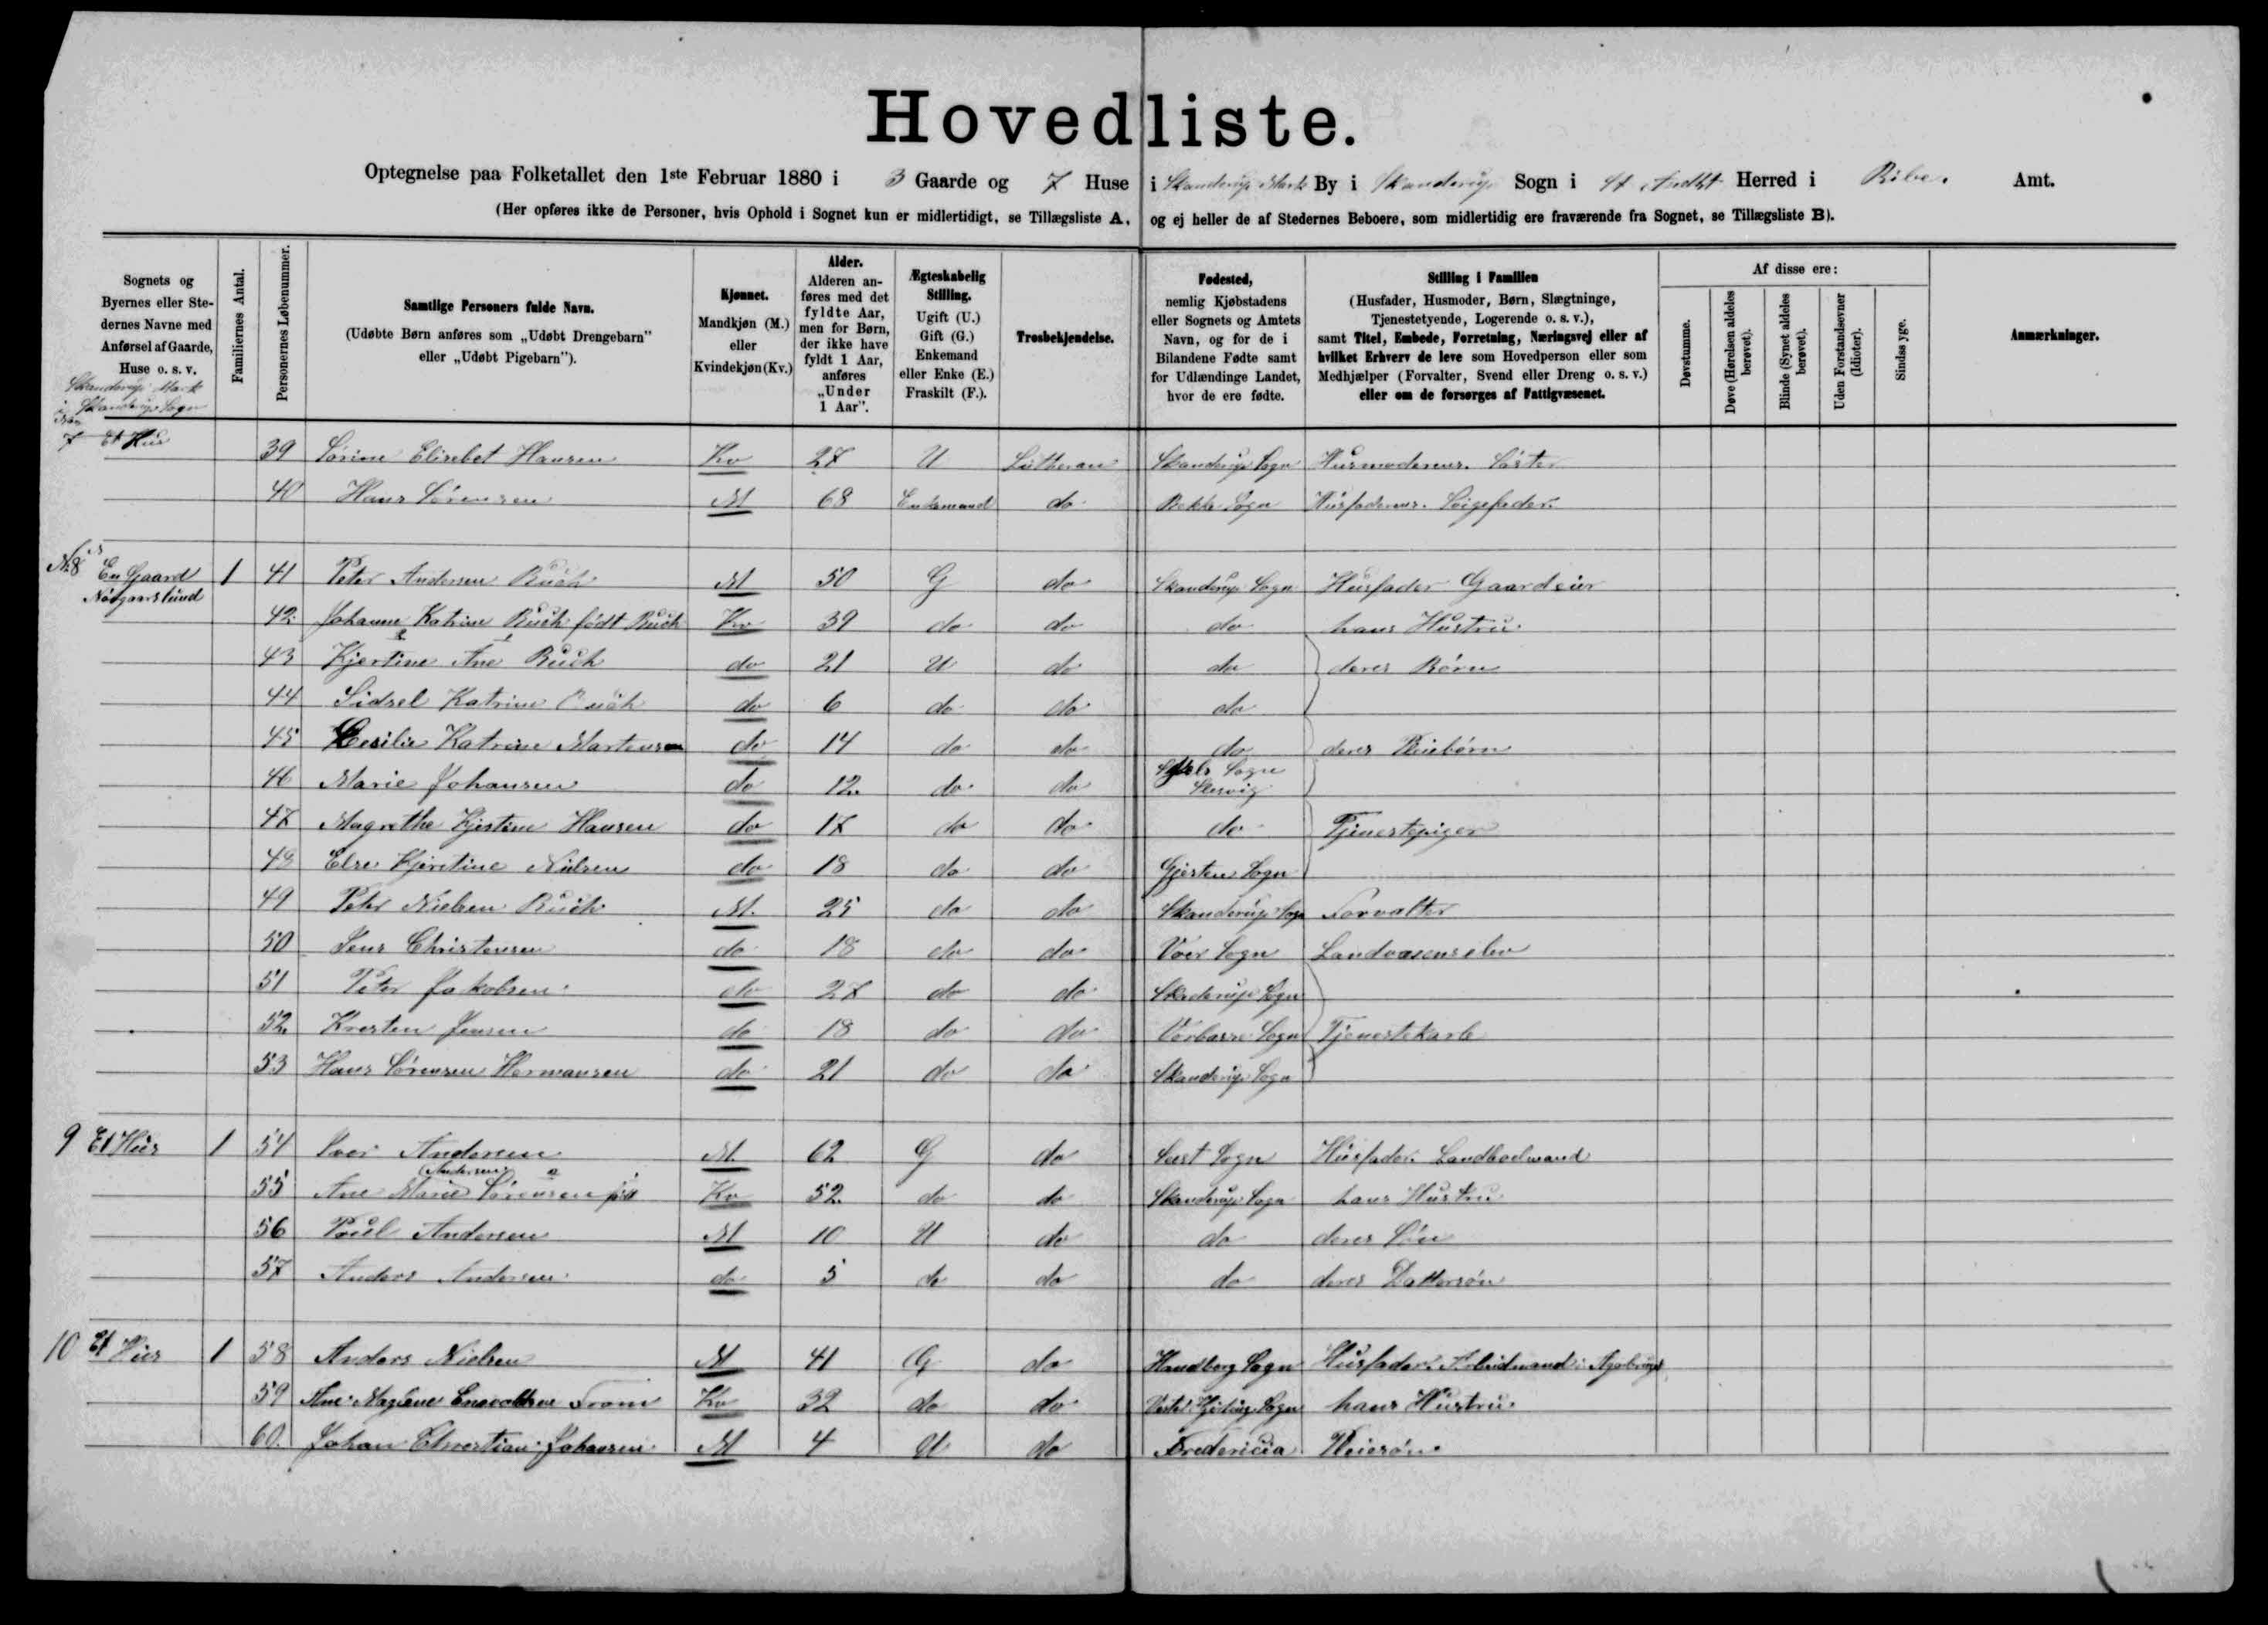 Hovedliste.
Optegnelse paa Folketallet den 1ste Februar 1880 i 3 Gaarde og 7 Huse i Skanderup Mark By i Skanderup Sogn i Herred i Ribe. Amt.
(Her opføres ikke de Personer, hvis Ophold i Sognet kun er midlertidigt, se Tillægsliste A, og ej heller de af Stedernes Beboere, som midlertidig ere fraværende fra Sognet, se Tillægsliste B).
Sognets og Byernes eller Stedernes Navne med Anførsel af Gaarde, Huse o. s. v.
Familiernes Antal.
Personernes Løbenummer.
Samtlige Personers fulde Navn. (Udøbte Børn anføres som „Udøbt Drengebarn" eller „Udøbt Pigebarn").
Kjønnet. Mandkjøn (M.) eller Kvindekjøn (Kv.)
Alder. Alderen anføres med det fyldte Aar, men for Børn, der ikke have fyldt 1 Aar, anføres „Under 1 Aar".
Ægteskabelig Stilling. Ugift (U.) Gift (G.) Enkemand eller Enke (E.) Fraskilt (F.).
Trosbekjendelse.
Fødested, nemlig Kjøbstadens eller Sognets og Amtets Navn, og for de i Bilandene Fødte samt for Udlændinge Landet, hvor de ere fødte.
Stilling i Familien (Husfader, Husmoder, Børn, Slægtninge, Tjenestetyende, Logerende o. s. v.), samt Titel, Embede, Forretning, Næringsvej eller af hvilket Erhverv de leve som Hovedperson eller som Medhjælper (Forvalter, Svend eller Dreng o. s. v.) eller om de forsørges af Fattigvæsenet.
Af disse ere:
Døvstumme.
Døve (Hørelsen aldeles berøvet).
Blinde (Synet aldeles berøvet).
Uden Forstandsevner (Idioter).
Sindssyge.
Anmærkninger.
Skanderup Mark
Skanderup Sogn
7 Et Hus 39 Sörine Elisebet Hansen Kv 27 U Lutheran Skanderup Sogn Husmoderens Söster
40 Hans Sörensen M 68 Enkemand do Bekke Sogn Husfaderens Svigefader
No 8 En Gaard 1 41 Peter Andersen Buch M 50 G do Skanderup Sogn Husfader Gaardeier
Nörgaarslund
42 Johanne Katrine Buch födt Buch Kv 39 do do do hans Hustru
43 Kjerstine Ane Buch do 21 U do do deres Börn
44 Sidsel Katrine Buch do 6 do do do
45 Cesilie Katrine Martensen do 14 do do do deres Pleiebörn
46 Marie Johansen do 12 do do Sogn Slesvig
47 Magrethe Kjestine Hansen do 17 do do do Tjenestepiger
48 Else Kjerstine Nielsen do 18 do do Gjesten Sogn
49 Peter Nielsen Buch M. 25 do do Skanderup Sogn Forvalter
50 Jens Christensen do 18 do do Voer Sogn Landvæsenselev
51 Peter Jakobsen do 27 do do Sogn
52 Kresten Jensen do 18 do do Vorbasse Sogn Tjenestekarle
53 Hans Sörensen Hermansen do 21 do do Skanderup Sogn
9 Et Hus 1 54 Iver Andersen M 62 G do Seest Sogn Husfader Landbodmand
Andersen
55 Ane Marie Sörensen Kv 52 do do Skanderup Sogn hans Hustru
56 Poul Andersen M 10 U do do deres Sön
57 Anders Andersen do 5 do do do deres Dattersön
10 Et Hus 1 58 Anders Nielsen M 41 G do Sogn Husfader Arbeidmand
59 Ane Maglene Enevoldsen From Kv 32 do do Sogn hans Hustru
60. Johan Christian Johansen M 4 U do Fredericia Pleiesön